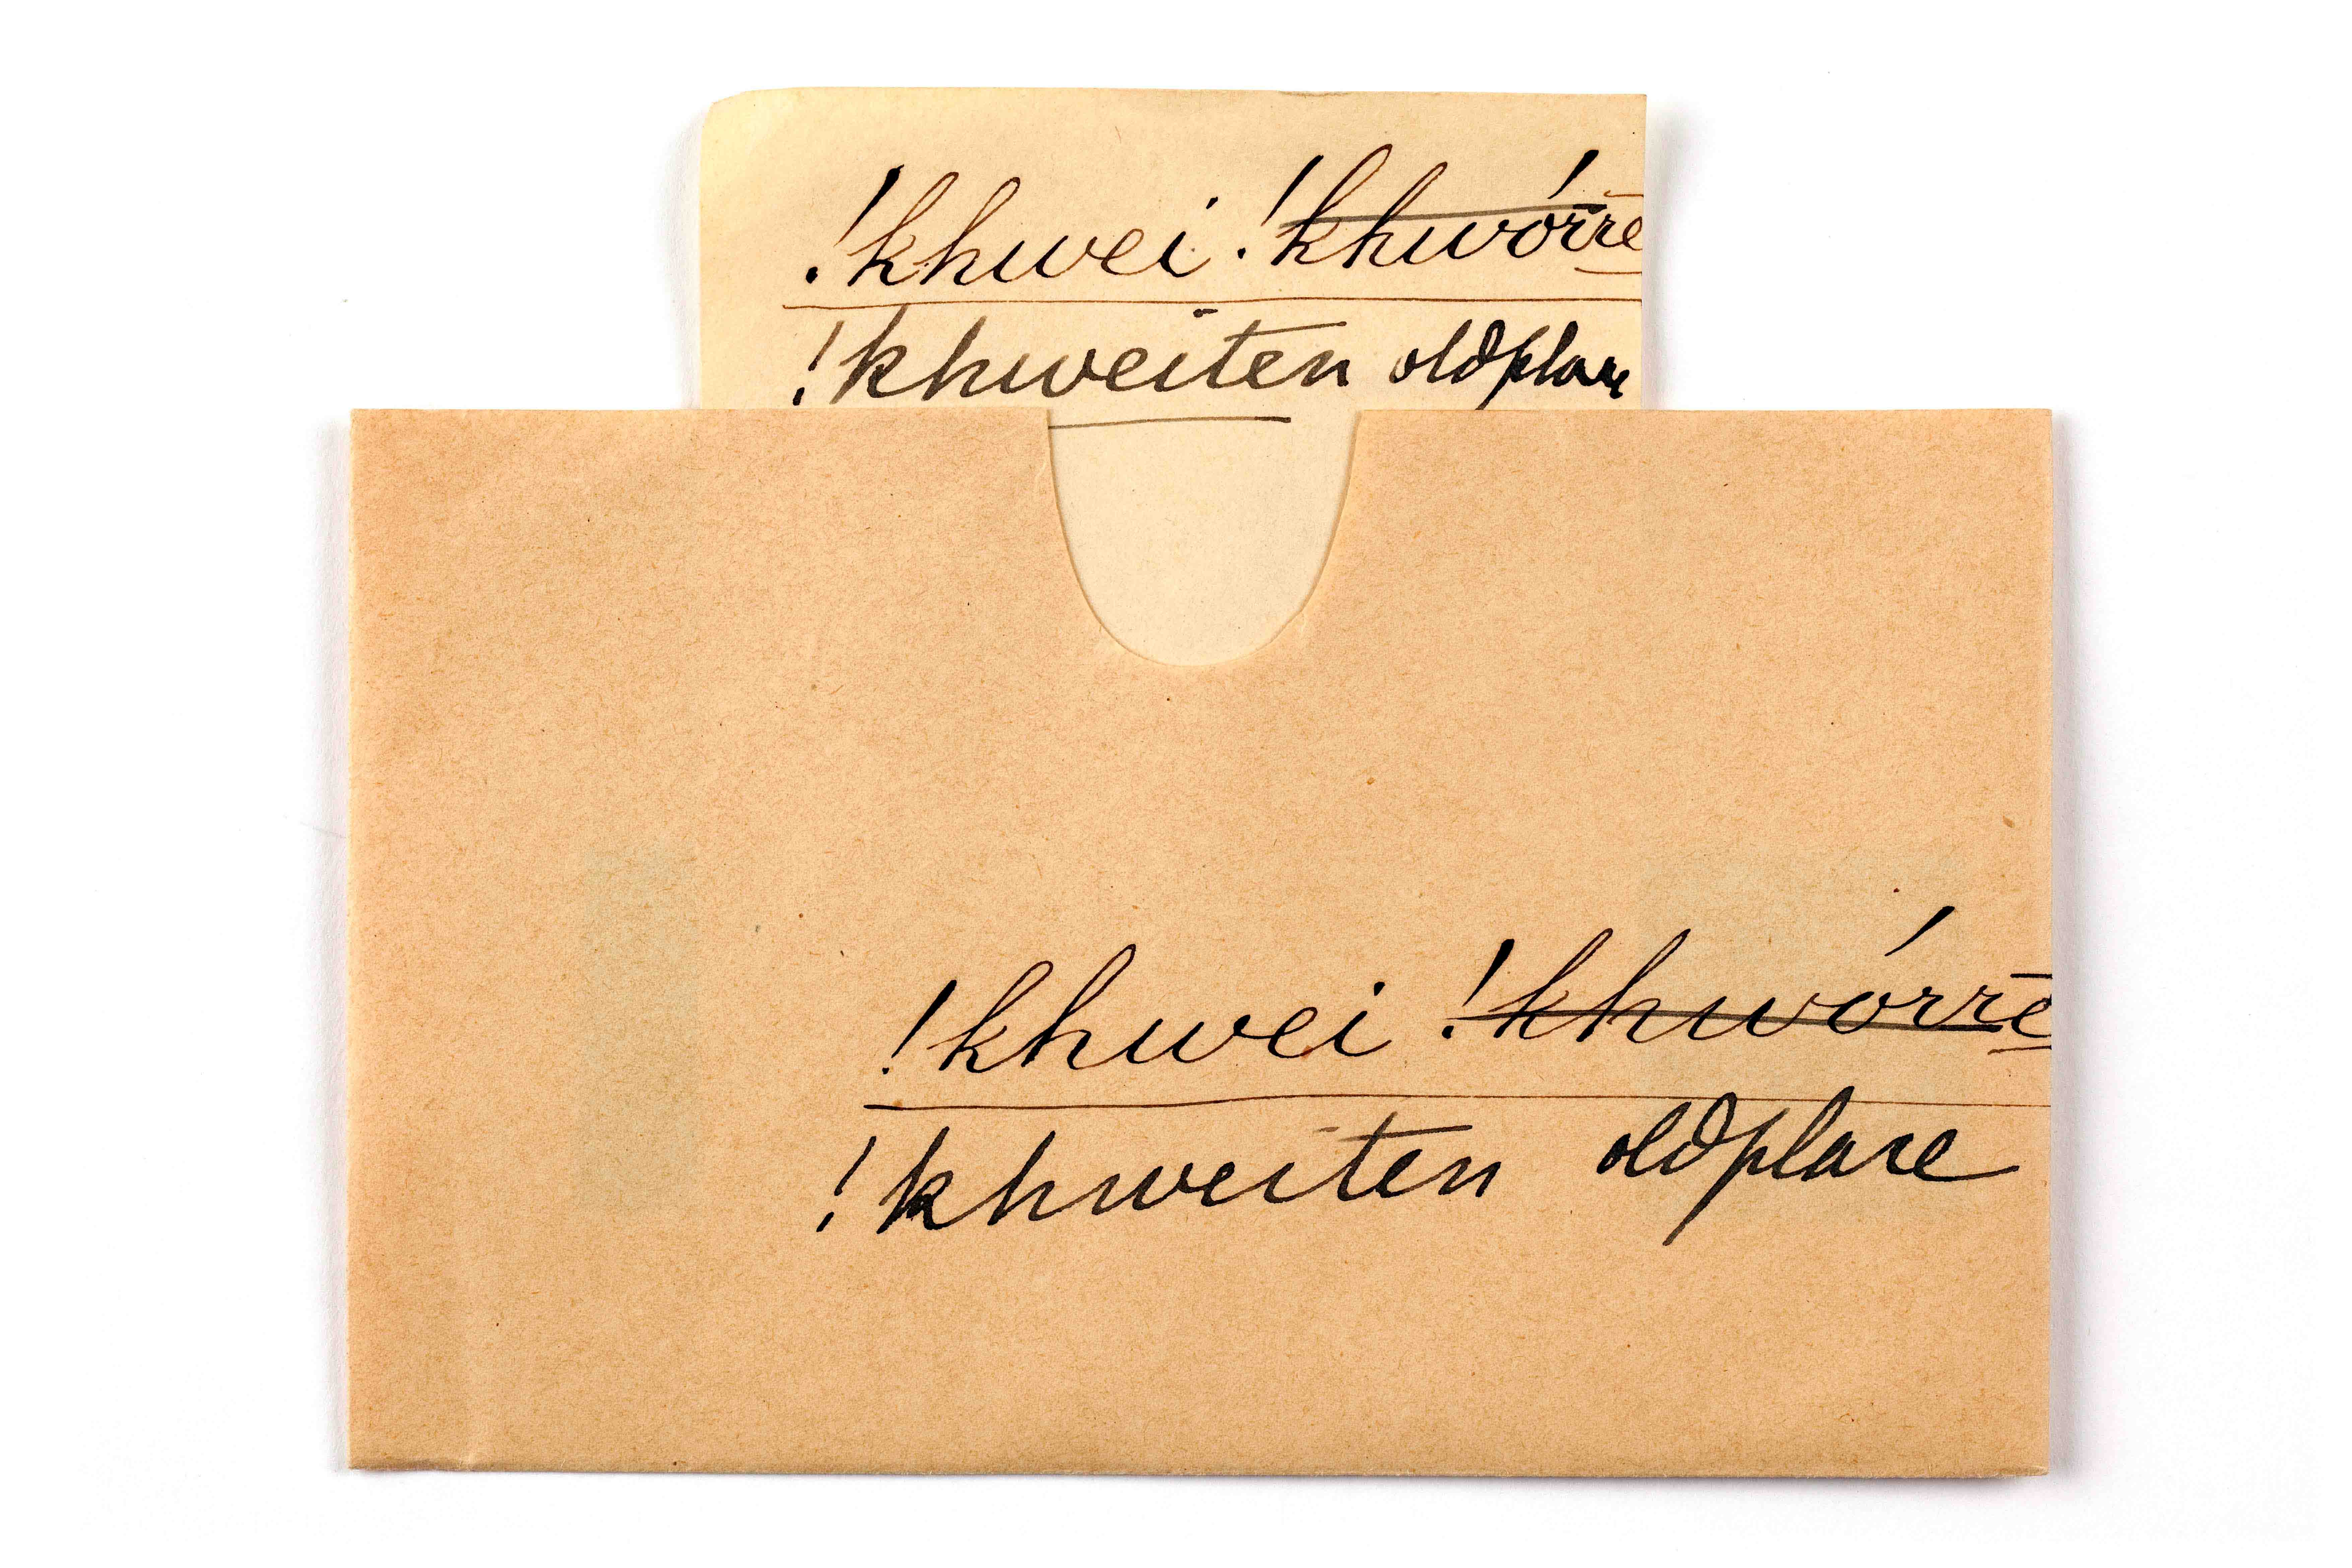 !khwei !khwórre
!khweiten old place
!khwei !khwórre
!khweiten old place